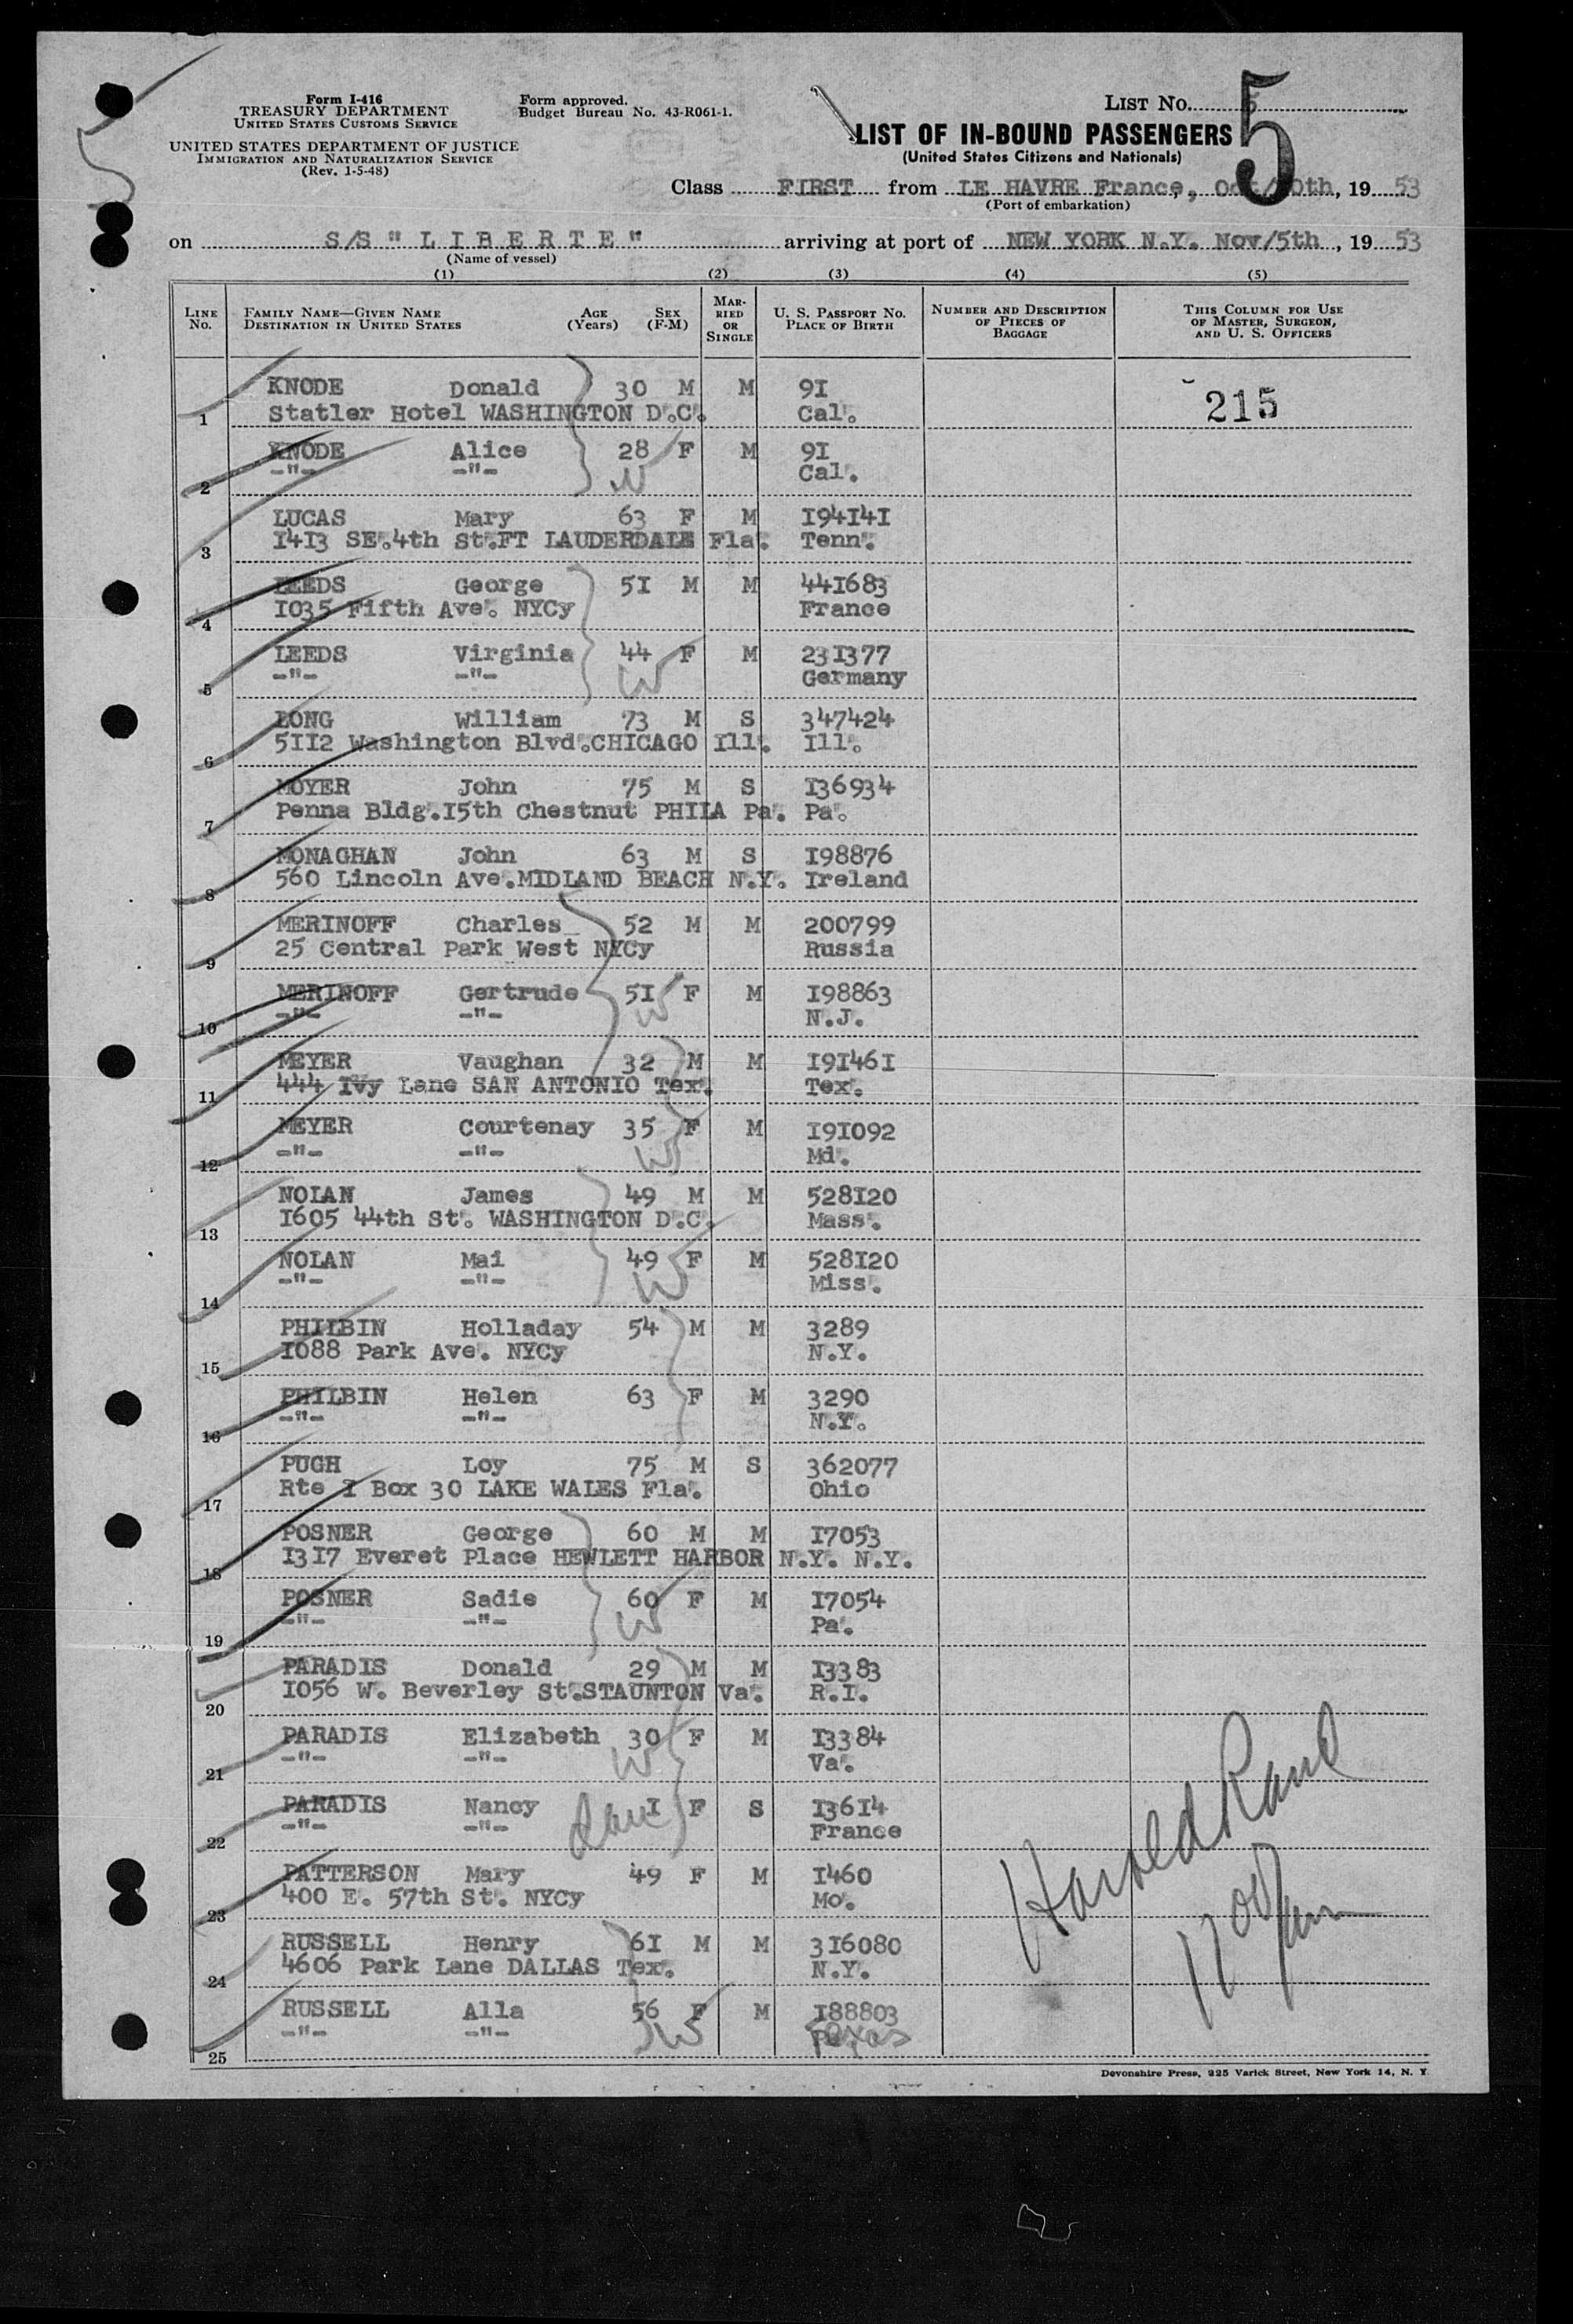 Form I-416
TREASURY DEPARTMENT
UNITED STATES CUSTOMS SERVICE
UNITED STATES DEPARTMENT OF JUSTICE
IMMIGRATION AND NATURALIZATION SERVICE
(Rev. 1-5-48)
Form approved.
Budget Bureau No. 43-R061-1.
LIST No. 5
LIST OF IN-BOUND PASSENGERS
(United States Citizens and Nationals)
Class FIRST from LE HAVRE France, 19 53
(Port of embarkation)
on S/S " L I B E R T E " arriving at port of NEW YORK N.Y. Nov/5th, 19 53
(Name of vessel)
(1) (2) (3) (4) (5)
LINE No. FAMILY NAME—GIVEN NAME DESTINATION IN UNITED STATES AGE (Years) SEX (F-M) MARRIED OR SINGLE U. S. PASSPORT No. PLACE OF BIRTH NUMBER AND DESCRIPTION OF PIECES OF BAGGAGE THIS COLUMN FOR USE OF MASTER, SURGEON, AND U. S. OFFICERS
KNODE Donald 30 M M 9I 215
1 Statler Hotel WASHINGTON D.C. Cal.
KNODE Alice 28 F M 9I
W
2 -"- -"- Cal.
LUCAS Mary 63 F M I94I4I
3 I4I3 SE.4th St.FT LAUDERDALE Fla. Tenn.
LEEDS George 5I M M 44I683
4 I035 Fifth Ave. NYCy France
LEEDS Virginia 44 F M 23I377
W
5 -"- -"- Germany
LONG William 73 M S 347424
6 5II2 Washington Blvd.CHICAGO Ill. Ill.
MOYER John 75 M S I36934
7 Penna Bldg.I5th Chestnut PHILA Pa. Pa.
MONAGHAN John 63 M S I98876
8 560 Lincoln Ave.MIDLAND BEACH N.Y. Ireland
MERINOFF Charles 52 M M 200799
9 25 Central Park West NYCy Russia
MERINOFF Gertrude 5I F M I98863
W
10 -"- -"- N.J.
MEYER Vaughan 32 M M I9I46I
11 444 Ivy Lane SAN ANTONIO Tex. Tex.
MEYER Courtenay 35 F M I9I092
W
12 -"- -"- Md.
NOLAN James 49 M M 528I20
13 I605 44th St. WASHINGTON D.C. Mass.
NOLAN Mai 49 F M 528I20
W
14 -"- -"- Miss.
PHILBIN Holladay 54 M M 3289
15 I088 Park Ave. NYCy N.Y.
PHILBIN Helen 63 F M 3290
16 -"- -"- N.Y.
PUGH Loy 75 M S 362077
17 Rte I Box 30 LAKE WALES Fla. Ohio
POSNER George 60 M M I7053
18 I3I7 Everet Place HEWLETT HARBOR N.Y. N.Y.
POSNER Sadie 60 F M I7054
W
19 -"- -"- Pa.
PARADIS Donald 29 M M I3383
20 I056 W. Beverley St.STAUNTON Va. R.I.
PARADIS Elizabeth 30 F M I3384
W
21 -"- -"- Va.
PARADIS Nancy I F S I36I4
22 -"- -"- France
PATTERSON Mary 49 F M I460
23 400 E. 57th St. NYCy Mo.
RUSSELL Henry 6I M M 3I6080
24 4606 Park Lane DALLAS Tex. N.Y.
RUSSELL Alla 56 F M I88803
W
25 -"- -"- Texas
Harold
Devonshire Press, 225 Varick Street, New York 14, N. Y.